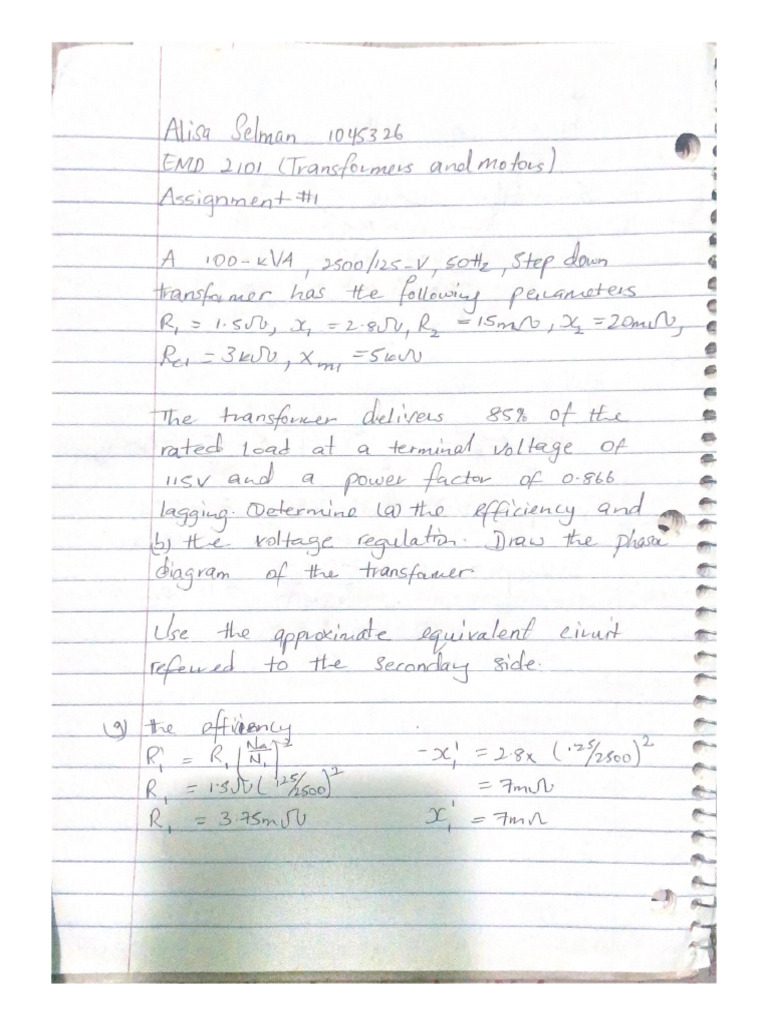 Alisa Selman 1045326
EMD 2101 (Transformers and motors)
Assignment #1
A 100-kVA, 2500/125-V, 50Hz, Step down
transformer has the following perameters
R₁ = 1.5Ω, x₁ = 2.8Ω, R₂ = 15mΩ, x₂ = 20mΩ,
Rc1 = 3kΩ, Xm1 = 5kΩ
The transformer delivers 85% of the
rated load at a terminal voltage of
115V and a power factor of 0.866
lagging. Determine (a) the efficiency and
b) the voltage regulation. Draw the phasor
diagram of the transformer.
Use the approximate equivalent circuit
referred to the seconday side.
a) the efficiency
R₁' = R₁ [N₂/N₁]² - x₁' = 2.8x (125/2500)²
R₁ = 1.5Ω (125/2500)² = 7mΩ
R₁ = 3.75mΩ x₁' = 7mΩ